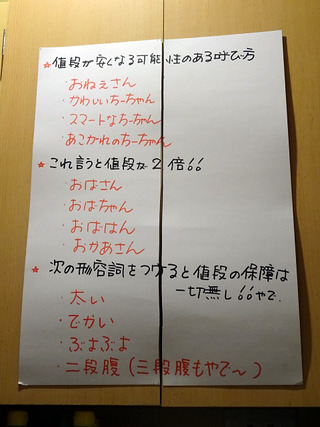 ★値段が安くなる可能性のある呼び方
・おねえさん
・かわいいちーちゃん
・スマートなちーちゃん
・あこがれのちーちゃん
★これ言うと値段が2倍!!
・おばさん
・おばちゃん
・おばはん
・おかあさん
★次の形容詞をつけると値段の保障は
一切無し!!やで.
・太い
・でかい
・ぶよぶよ
・二段腹(三段腹もやで〜)